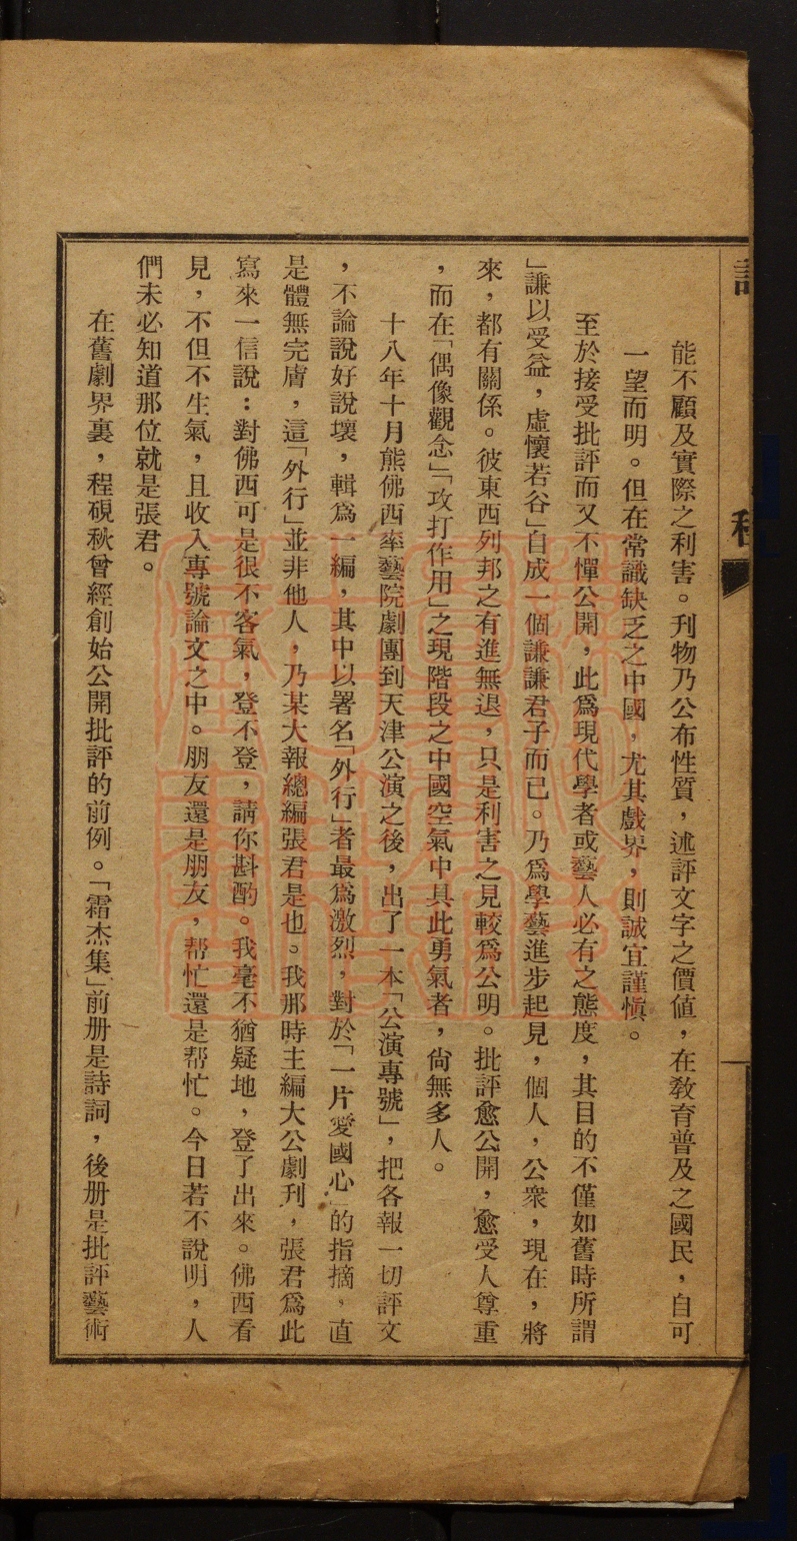 能不顧及實際之利害。刊物乃公布性質，述評文字之價値，在敎育普及之國民，自可
一望而明。但在常識缺乏之中國，尤其戲界，則誠宜謹愼。
至於接受批評而又不憚公開，此爲現代學者或藝人必有之態度，其目的不僅如舊時所謂
」謙以受益，虛懷若谷」自成一個謙謙君子而已。乃爲學藝進步起見，個人，公衆，現在，將
來，都有關係。彼東西列邦之有進無退，只是利害之見較爲公明。批評愈公開，愈受人尊重
，而在「偶像觀念」「攻打作用」之現階段之中國空氣中具此勇氣者，尙無多人。
十八年十月熊佛西率藝院劇團到天津公演之後，出了一本「公演專號」，把各報一切評文
，不論說好說壞，輯爲一編，其中以署名「外行」者最爲激烈，對於「一片愛國心」的指摘，直
是體無完膚，這「外行」並非他人，乃某大報總編張君是也。我那時主編大公劇刋，張君爲此
寫來一信說：對佛西可是很不客氣，登不登，請你斟酌。我毫不猶疑地，登了出來。佛西看
見，不但不生氣，且收入專號論文之中。朋友還是朋友，帮忙還是帮忙。今日若不說明，人
們未必知道那位就是張君。
在舊劇界裏，程硯秋曾經創始公開批評的前例。「霜杰集」前册是詩詞，後册是批評藝術